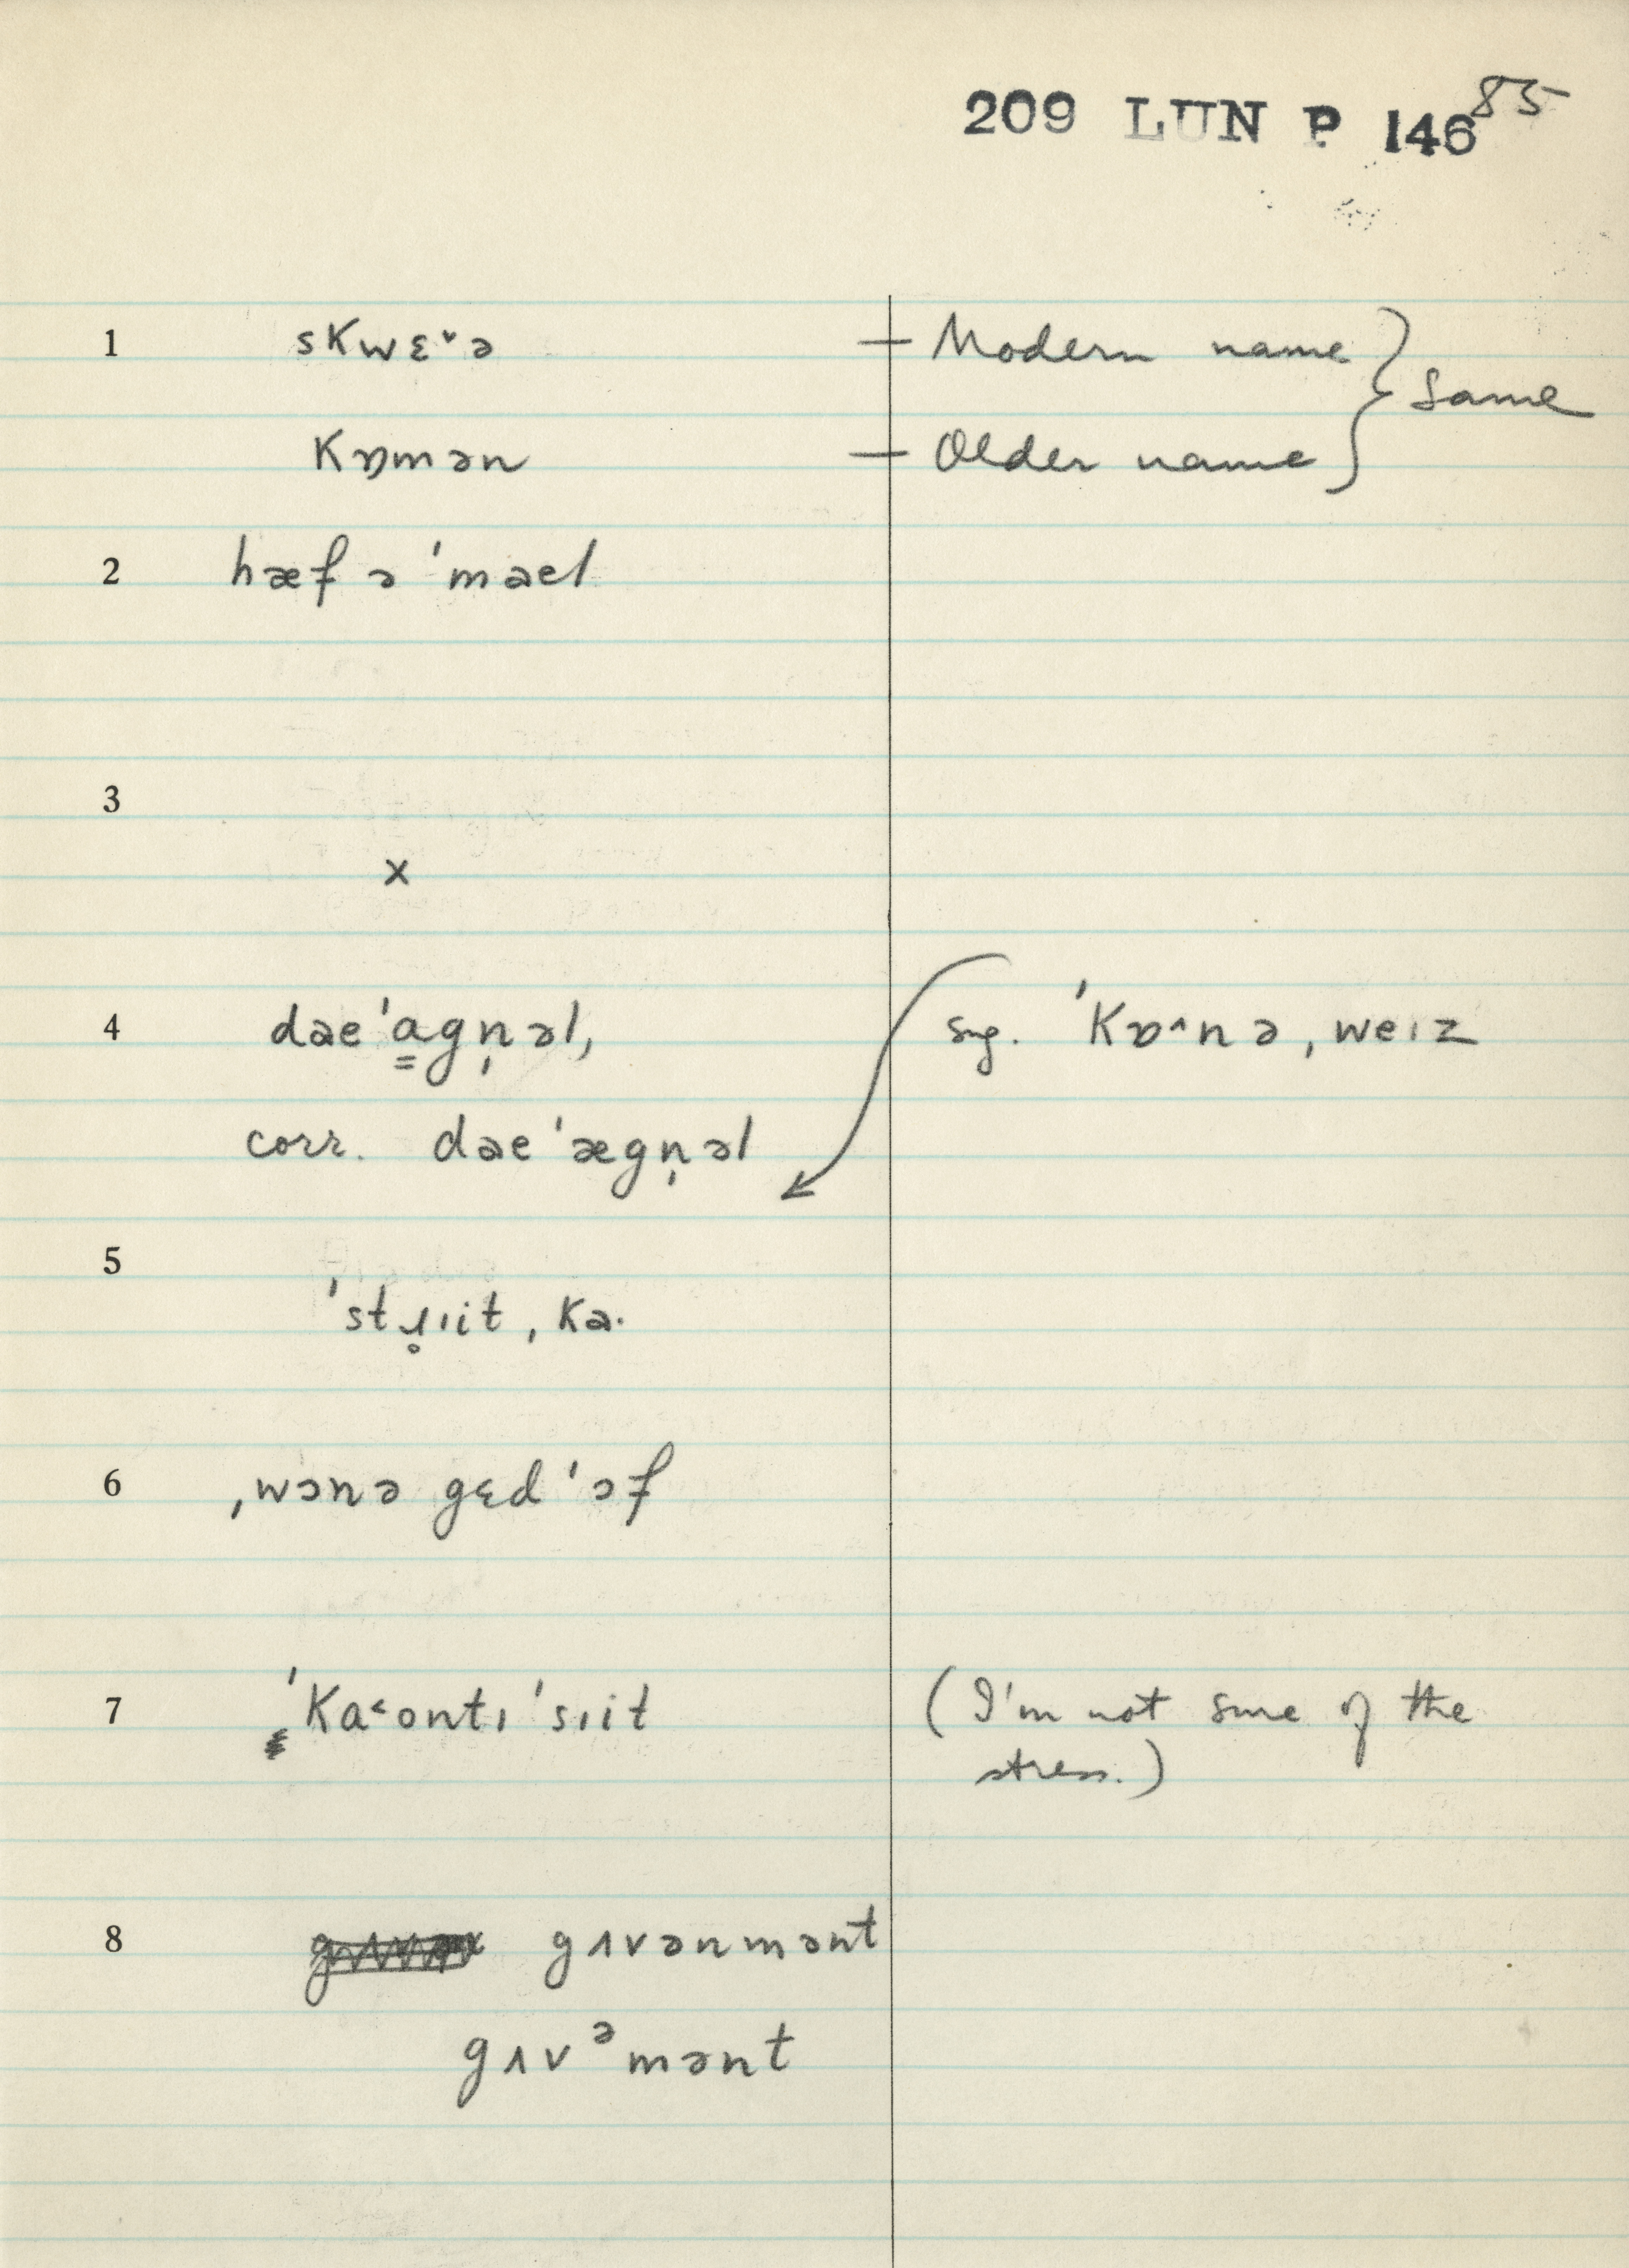 209 LUN P 146 85
1 skwɛ˅ə — Modern name } same
kɒmən — Older name
2 hæf ə ˈməel
3
x
4 dəeˈa̳gn̩əl, sug. ˈkɒ˄nə, weɪz
corr. dəeˈægn̩əl
5
ˈstɹ̥ɪit, kə.
6 ˌwənə gɛd ˈəf
7 ˈka˂ontɪ ˈsɪit (I'm not sure of the
stress.)
8 gʌvənmənt
gʌvᵊmənt